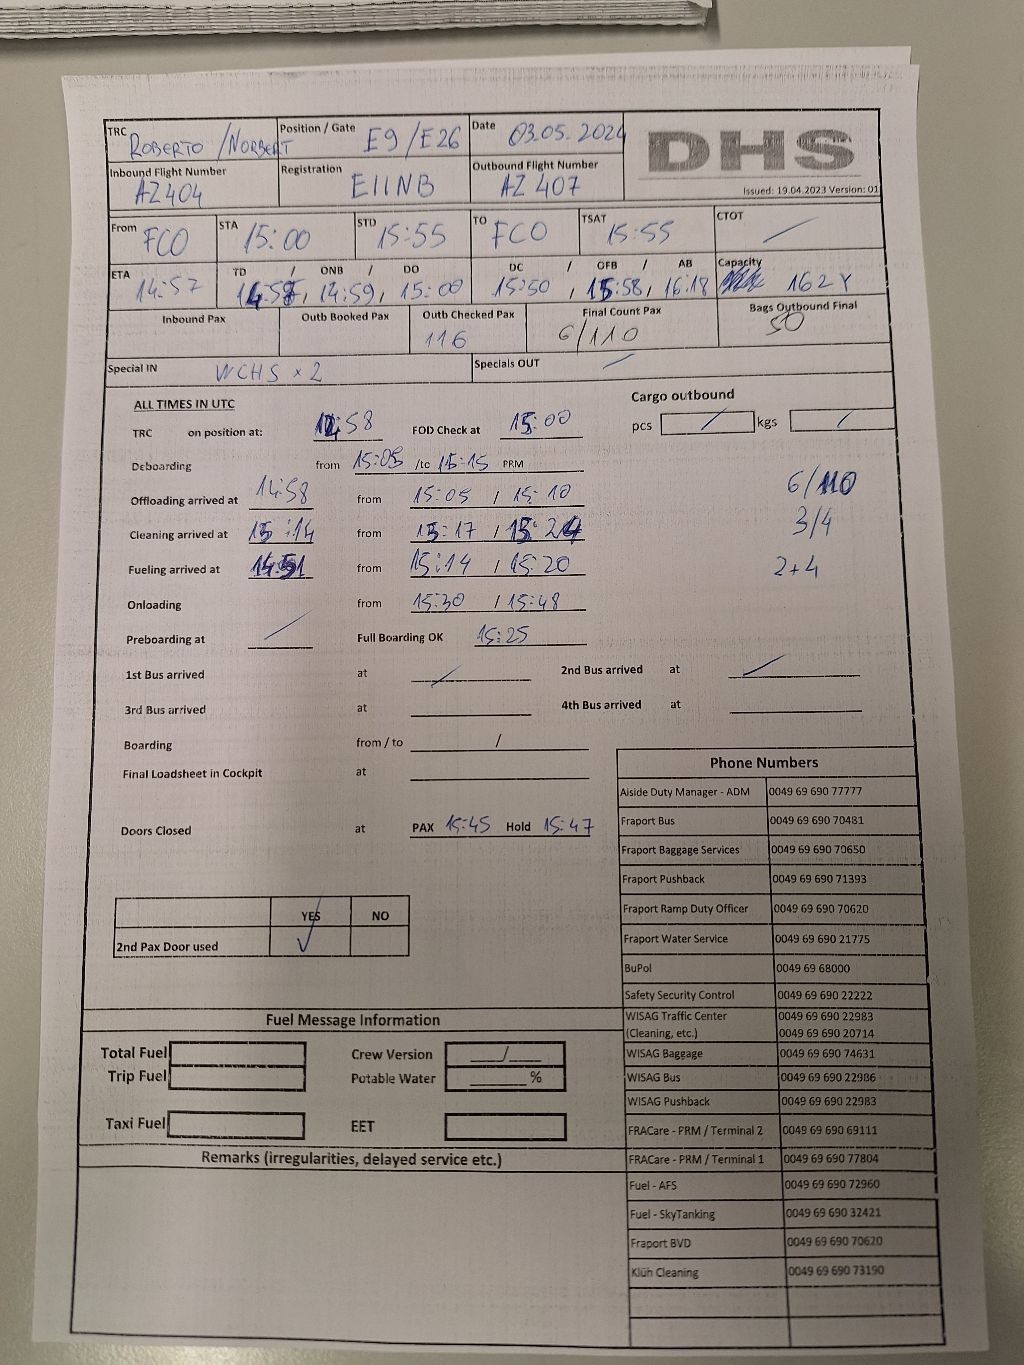 TRC ROBERTO / NORBERT Position / Gate E9/E26 Date 03.05.2024 DHS
Inbound Flight Number AZ404 Registration EIINB Outbound Flight Number AZ 407 Issued: 19.04.2023 Version: 01
From FCO STA 15:00 STD 15:55 TO FCO TSAT 15:55 CTOT /
ETA 14:57 TD / ONB / DO 14:57, 14:59, 15:00 DC / OFB / AB 15:50, 15:58, 16:18 Capacity 162Y
Inbound Pax Outb Booked Pax Outb Checked Pax 116 Final Count Pax 6/110 Bags Outbound Final 50
Special IN WCHS x 2 Specials OUT /
ALL TIMES IN UTC Cargo outbound
TRC on position at: 14:58 FOD Check at 15:00 pcs / kgs /
Deboarding from 15:05 /to 15:15 PRM
Offloading arrived at 14:58 from 15:05 / 15:10 6/110
Cleaning arrived at 15:14 from 15:17 / 15:24 3/4
Fueling arrived at 14:51 from 15:14 / 15:20 2+4
Onloading from 15:30 / 15:48
Preboarding at / Full Boarding OK 15:25
1st Bus arrived at / 2nd Bus arrived at /
3rd Bus arrived at 4th Bus arrived at
Boarding from / to /
Final Loadsheet in Cockpit at
Doors Closed at PAX 15:45 Hold 15:47
YES NO
2nd Pax Door used ✓
Fuel Message Information
Total Fuel Crew Version ___/___
Trip Fuel Potable Water ______ %
Taxi Fuel EET
Remarks (irregularities, delayed service etc.)
Phone Numbers
Aiside Duty Manager - ADM 0049 69 690 77777
Fraport Bus 0049 69 690 70481
Fraport Baggage Services 0049 69 690 70650
Fraport Pushback 0049 69 690 71393
Fraport Ramp Duty Officer 0049 69 690 70620
Fraport Water Service 0049 69 690 21775
BuPol 0049 69 68000
Safety Security Control 0049 69 690 22222
WISAG Traffic Center 0049 69 690 22983
(Cleaning, etc.) 0049 69 690 20714
WISAG Baggage 0049 69 690 74631
WISAG Bus 0049 69 690 22986
WISAG Pushback 0049 69 690 22983
FRACare - PRM / Terminal 2 0049 69 690 69111
FRACare - PRM / Terminal 1 0049 69 690 77804
Fuel - AFS 0049 69 690 72960
Fuel - SkyTanking 0049 69 690 32421
Fraport BVD 0049 69 690 70620
Klüh Cleaning 0049 69 690 73190